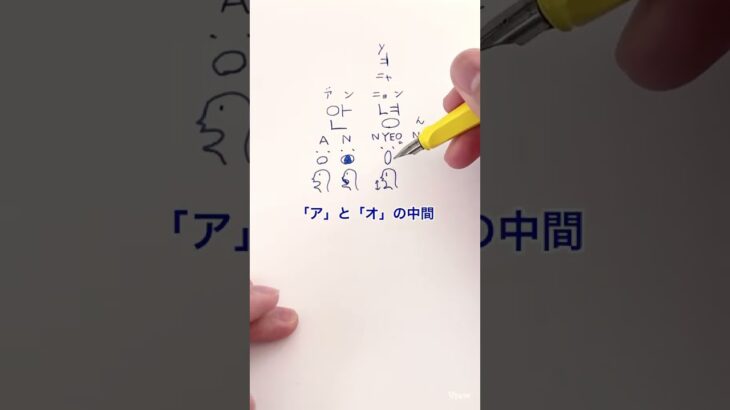 Y
ㅕ
ニャ
アン ニョン
안 녕
ん
A N NYEO N
「ア」と「オ」の中間